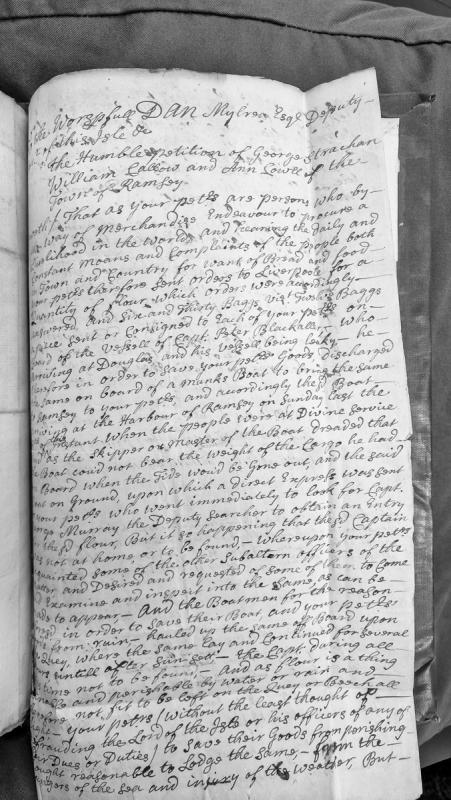 the Worspfull DAN Mylrea Esqr Deputy
of this Isle &c
The Humble petition of George Strachan
William Callow and Ann Lowll of the
Town of Ramsey
That as your petrs are persons who by
way of Merchandise Endeavour to procure a
Livelihood in the World, and hearing the daily and
Constant Moans and Complaints of the people both
Town and Country for want of Bread and food
your petrs therefore sent orders to Liverpoole for a
Quantity of flour, which orders were accordingly
answered, and Six and Thirty Baggs vizt Twelve Baggs
apiece sent or Consigned to Each of your petrs on
board of the Vessell of Capt. Peter Blackall, who
arriving at Douglas and his Vessell being leiky he
therefore in order to save your petrs Goods discharged
the same on board of a Manks Boat to bring the same
to Ramsey to your petrs, and accordingly the sd Boat
arriving at the Harbour of Ramsey on Sunday last the
Instant when the people were at Divine Service
as the Skipper or master of the Boat dreaded that
Boat could not bear the Weight of the Cargo he had
Board when the Tide wou'd be gone out, and the said
on Ground, upon which a direct Express was sent
your petrs who went immediately to look for Capt.
Murray the Deputy Searcher to obtain an Entry
the sd flour, But it so happening that the sd Captain
was not at home or to be found, Whereupon your petrs
acquainted some of the other Subaltern officers of the
matter and Desired and requested of some of them to Come
and Examine and inspect into the Same, as can be
made to appear — And the Boatmen for the reason
in order to save their Boat, and your petrs
from ruin — hauled up the same off Board upon
the Quey, where the same lay and Continued for several
hours untill after Sun set — The Capt. during all
time not to be found, And as flour is a thing
and perishable by water or rain and
therefore not fit to be left on the Quey or Beech all
night — your petrs (without the least thought of
defrauding the Lord of the Isle or his officers of any of
their Dues or Duties) to save their Goods from perishing
thought reasonable to Lodge the same, from the
dangers of the Sea and injury of the weather, But